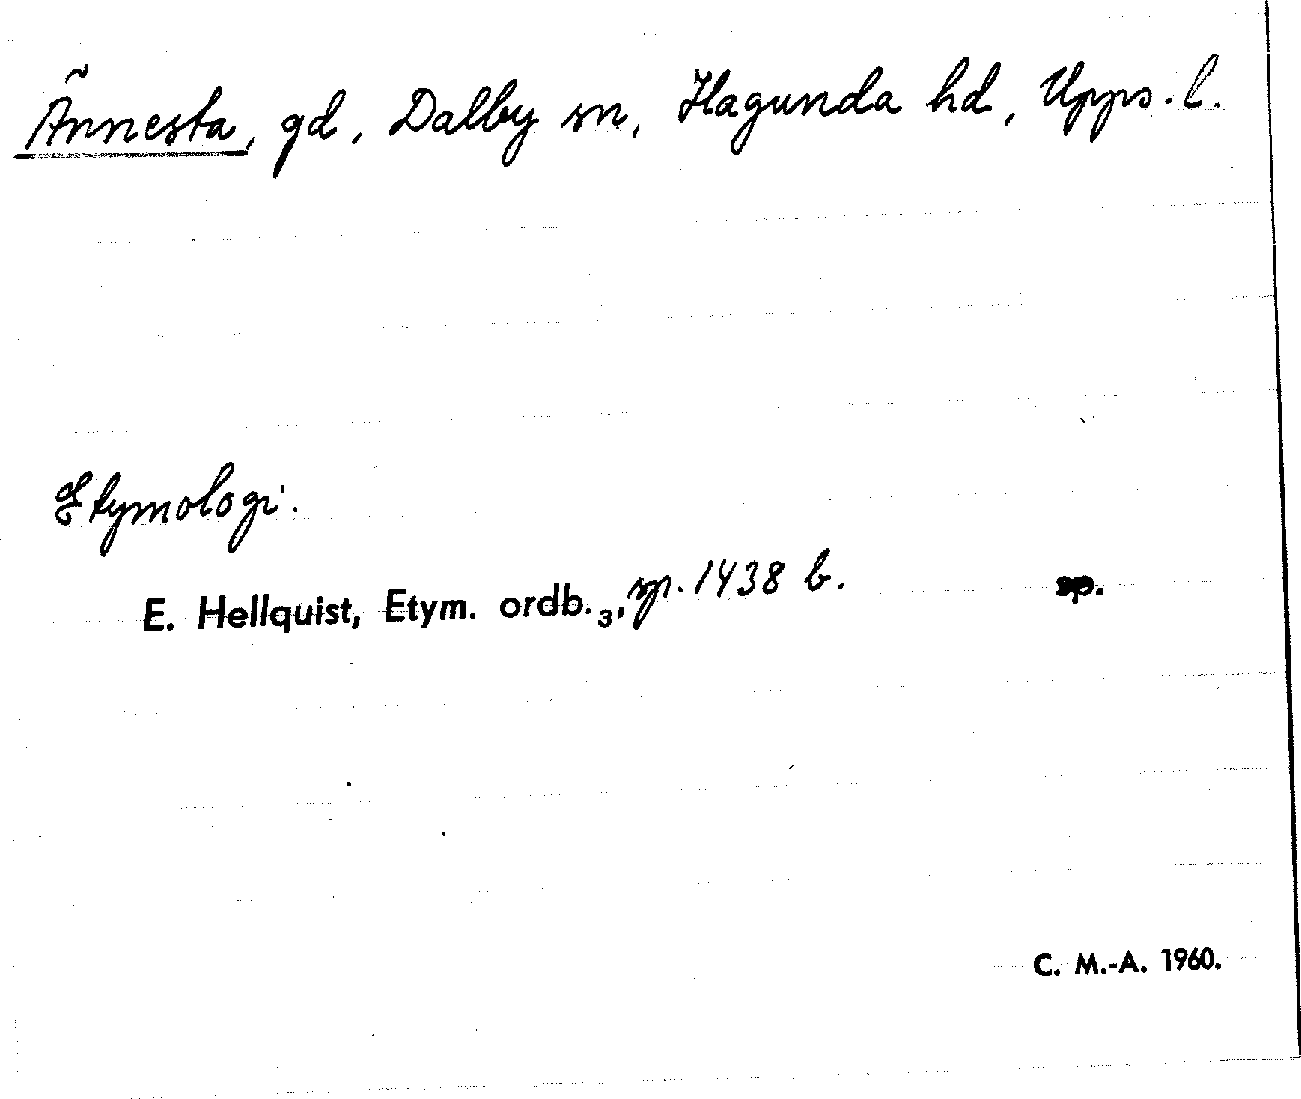 Ännesta, gd, Dalby sn, Hagunda hd, Upps. l.
Etymologi.
E. Hellquist, Etym. ordb.₃, sp. 1438 b. sp.
C. M.-A. 1960.